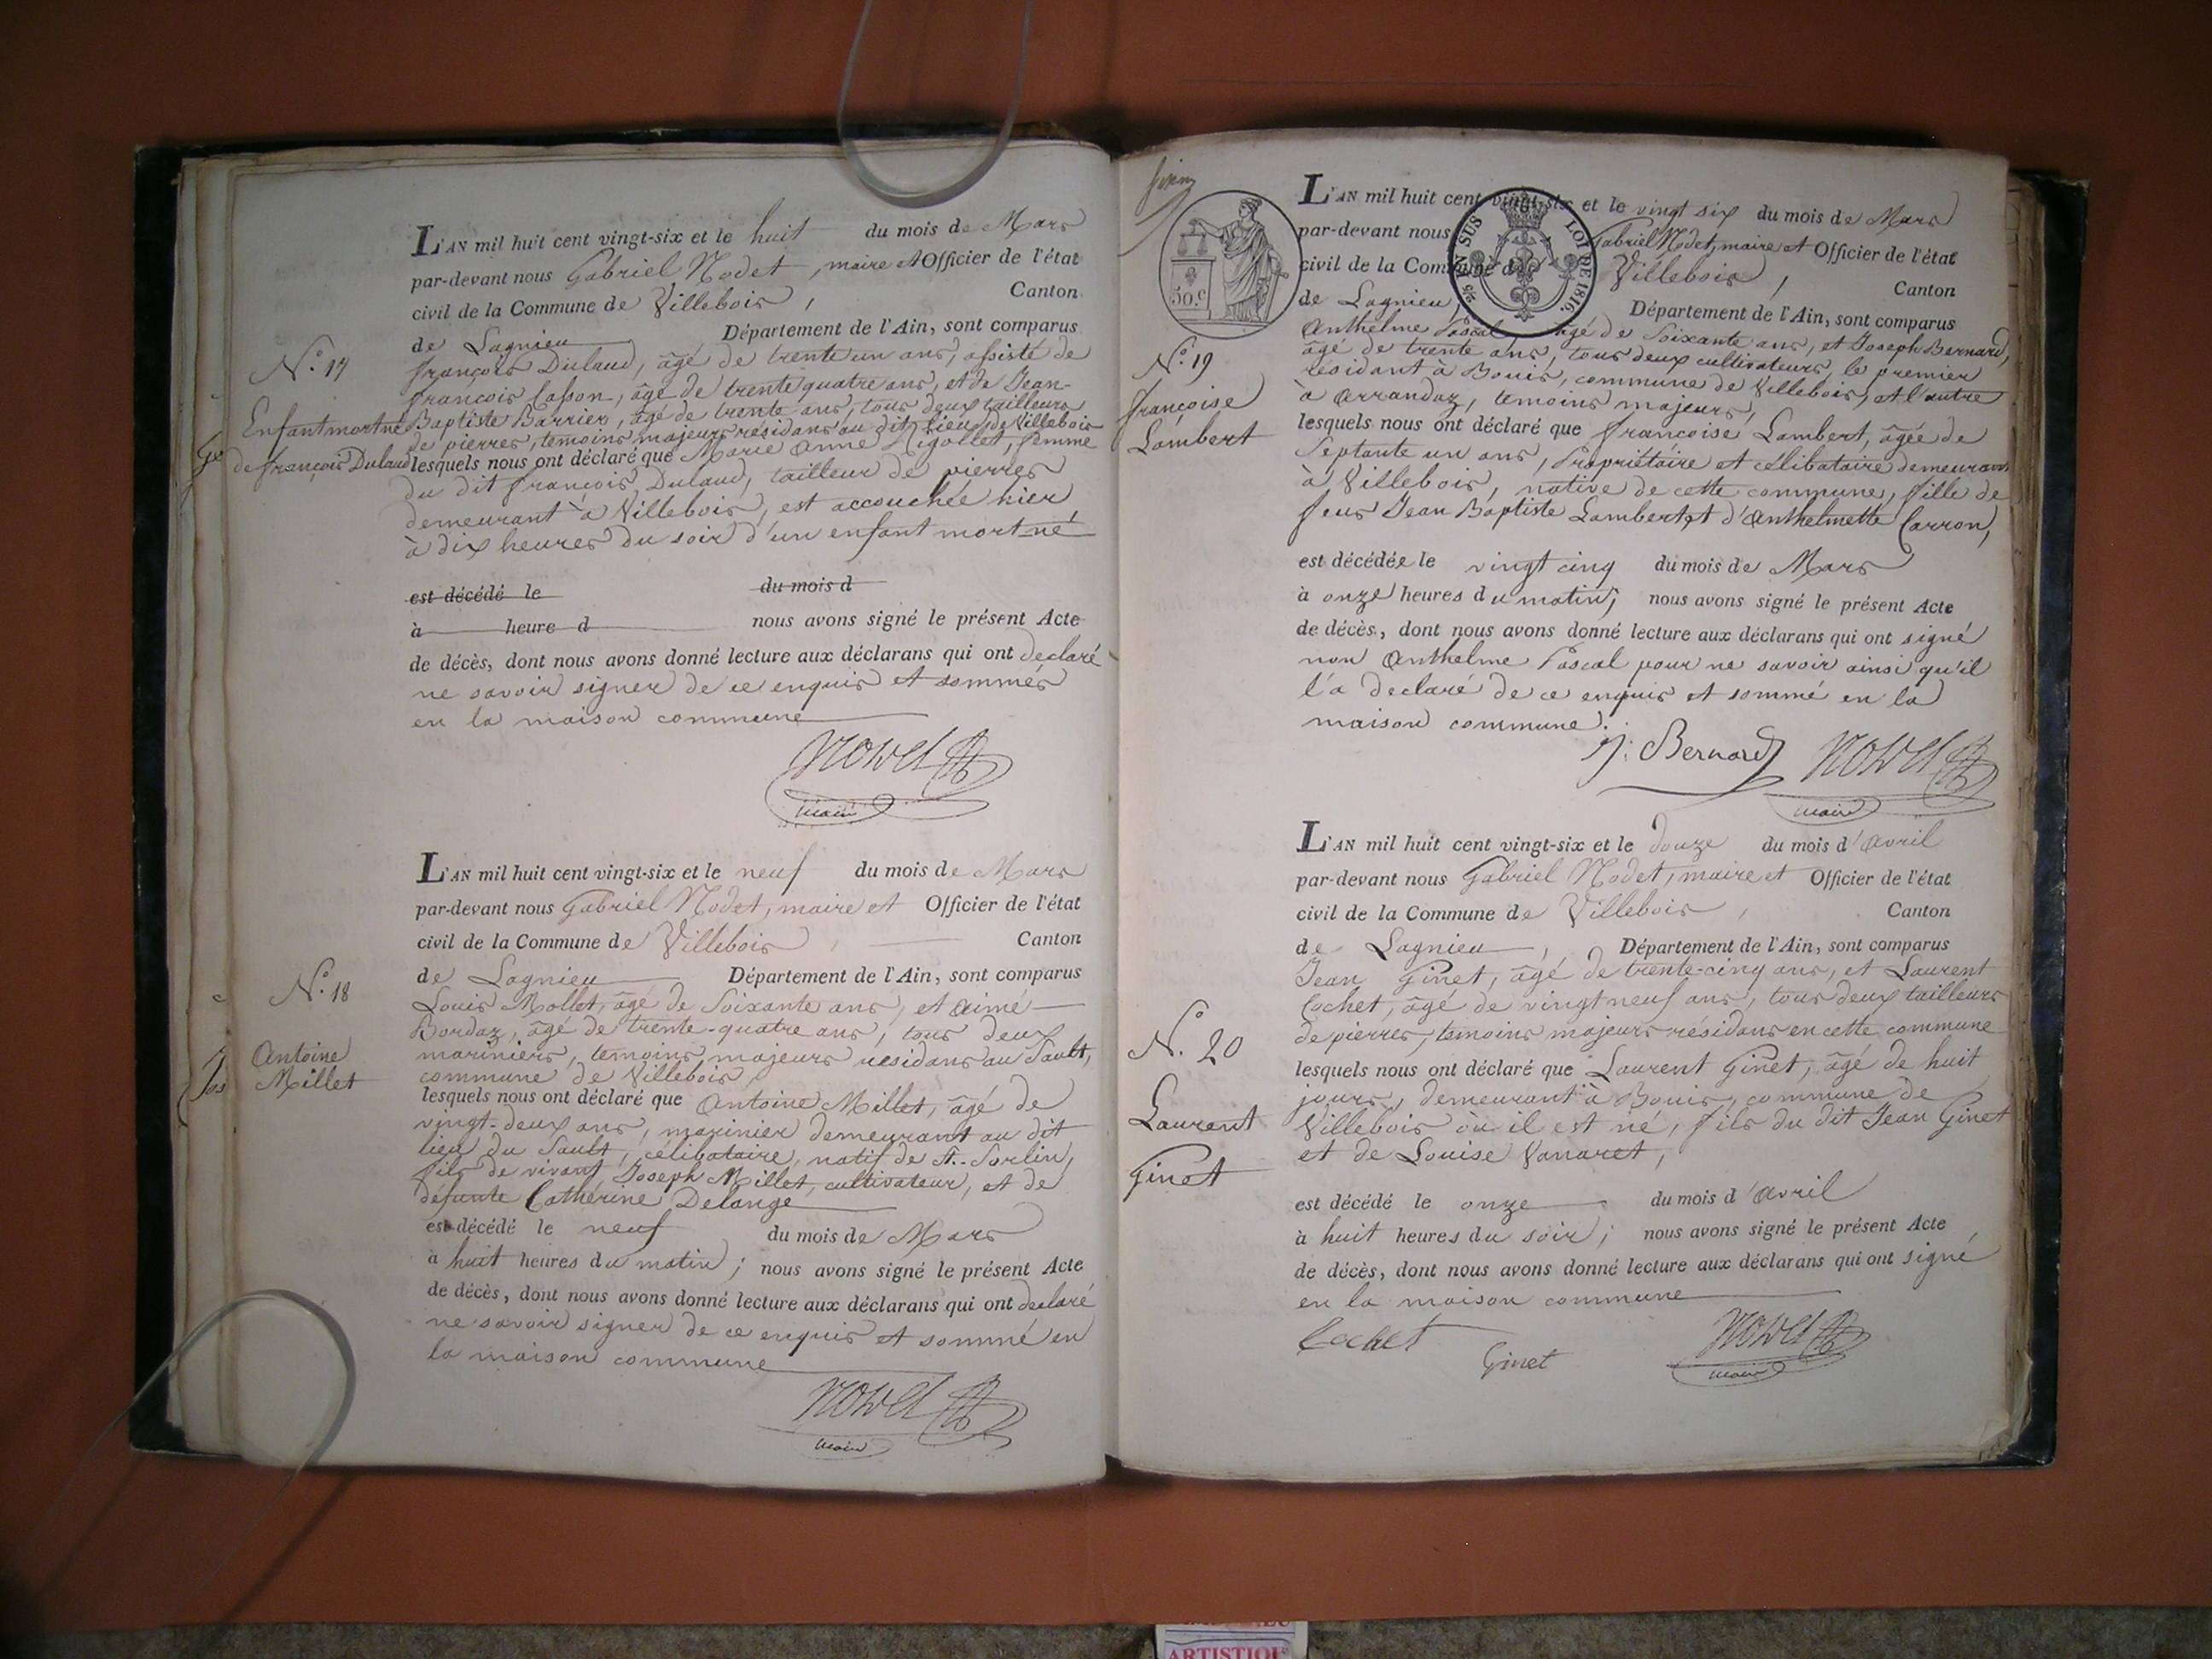 L'AN mil huit cent vingt-six et le huit du mois de Mars
par-devant nous Gabriel Nodet, maire et Officier de l'état
civil de la Commune de Villebois, Canton
de Lagnieu, Département de l'Ain, sont comparus
françois Dulaud, âgé de trente un ans, assisté de
françois Casson, âgé de trente quatre ans, et de Jean-
Baptiste Barrier, âgé de trente ans, tous deux tailleurs
de pierres, temoins majeurs résidans au dit lieu de Villebois
lesquels nous ont déclaré que Marie Anne Rigollet, femme
du dit françois Dulaud, tailleur de pierres
demeurant à Villebois, est accouchée hier
à dix heures du soir d'un enfant mort-né
est décédé le du mois d
à heure d nous avons signé le présent Acte
de décès, dont nous avons donné lecture aux déclarans qui ont declaré
ne savoir signer de ce enquis et sommés
en la maison commune
Nodet
maire
N.° 17
Enfant mort né
de françois Dulaud
L'AN mil huit cent vingt-six et le neuf du mois de Mars
par-devant nous Gabriel Nodet, maire et Officier de l'état
civil de la Commune de Villebois, Canton
de Lagnieu Département de l'Ain, sont comparus
Louis Mollet, âgé de Soixante ans, et Aimé
Bordaz, âgé de trente-quatre ans, tous deux
mariniers, temoins majeurs residans au Sault,
commune de Villebois,
lesquels nous ont déclaré que Antoine Millet, âgé de
vingt-deux ans, marinier demeurant au dit
lieu du Sault, célibataire, natif de St.-Sorlin,
fils de vivant Joseph Millet, cultivateur, et de
défunte Cathérine Delange
est décédé le neuf du mois de Mars
à huit heures du matin; nous avons signé le présent Acte
de décès, dont nous avons donné lecture aux déclarans qui ont declaré
ne savoir signer de ce enquis et sommé en
la maison commune
Nodet
maire
N.° 18
Antoine
Millet
L'AN mil huit cent vingt-six et le vingt six du mois de Mars
par-devant nous Gabriel Nodet, maire et Officier de l'état
civil de la Commune de Villebois, Canton
de Lagnieu, Département de l'Ain, sont comparus
Anthelme Pascal âgé de Soixante ans, et Joseph Bernard,
âgé de trente ans, tous deux cultivateurs, le premier
résidant à Bouis, commune de Villebois, et l'autre
à Arrandaz, temoins majeurs,
lesquels nous ont déclaré que françoise Lambert, âgée de
Septante un ans, Propriétaire et célibataire demeurant
à Villebois, native de cette commune, fille de
feus Jean Baptiste Lambert et d'Anthelmette Carron,
est décédée le vingt cinq du mois de Mars
à onze heures du matin; nous avons signé le présent Acte
de décès, dont nous avons donné lecture aux déclarans qui ont signé
non Anthelme Pascal pour ne savoir ainsi qu'il
l'a declaré de ce enquis et sommé en la
maison commune.
J: Bernard Nodet
maire
50.c
EN SUS LOI DE 1816.
N.° 19
françoise
Lambert
L'AN mil huit cent vingt-six et le douze du mois d'Avril
par-devant nous Gabriel Nodet, maire et Officier de l'état
civil de la Commune de Villebois, Canton
de Lagnieu, Département de l'Ain, sont comparus
Jean Ginet, âgé de trente-cinq ans, et Laurent
Cochet, âgé de vingt neuf ans, tous deux tailleurs
de pierres, temoins majeurs résidans en cette commune
lesquels nous ont déclaré que Laurent Ginet, âgé de huit
jours, demeurant à Bouis, commune de
Villebois où il est né, fils du dit Jean Ginet
et de Louise Vanaret,
est décédé le onze du mois d'Avril
à huit heures du soir; nous avons signé le présent Acte
de décès, dont nous avons donné lecture aux déclarans qui ont signé
en la maison commune
Cochet Ginet Nodet
maire
N.° 20
Laurent
Ginet
ARTISTIQU